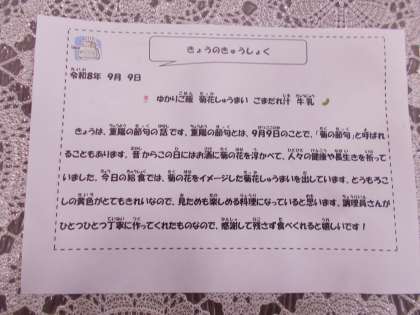 きょうのきゅうしょく
令和8年 9月 9日
ゆかりご飯 菊花しゅうまい ごまだれ汁 牛乳
きょうは、重陽の節句の話です。重陽の節句とは、9月9日のことで、「菊の節句」と呼ばれ
ることもあります。昔からこの日にはお酒に菊の花を浮かべて、人々の健康や長生きを祈って
いました。今日の給食では、菊の花をイメージした菊花しゅうまいを出しています。とうもろこ
しの黄色がとてもきれいなので、見ためも楽しめる料理になっていると思います。調理員さんが
ひとつひとつ丁寧に作ってくれたものなので、感謝して残さず食べてくれると嬉しいです!